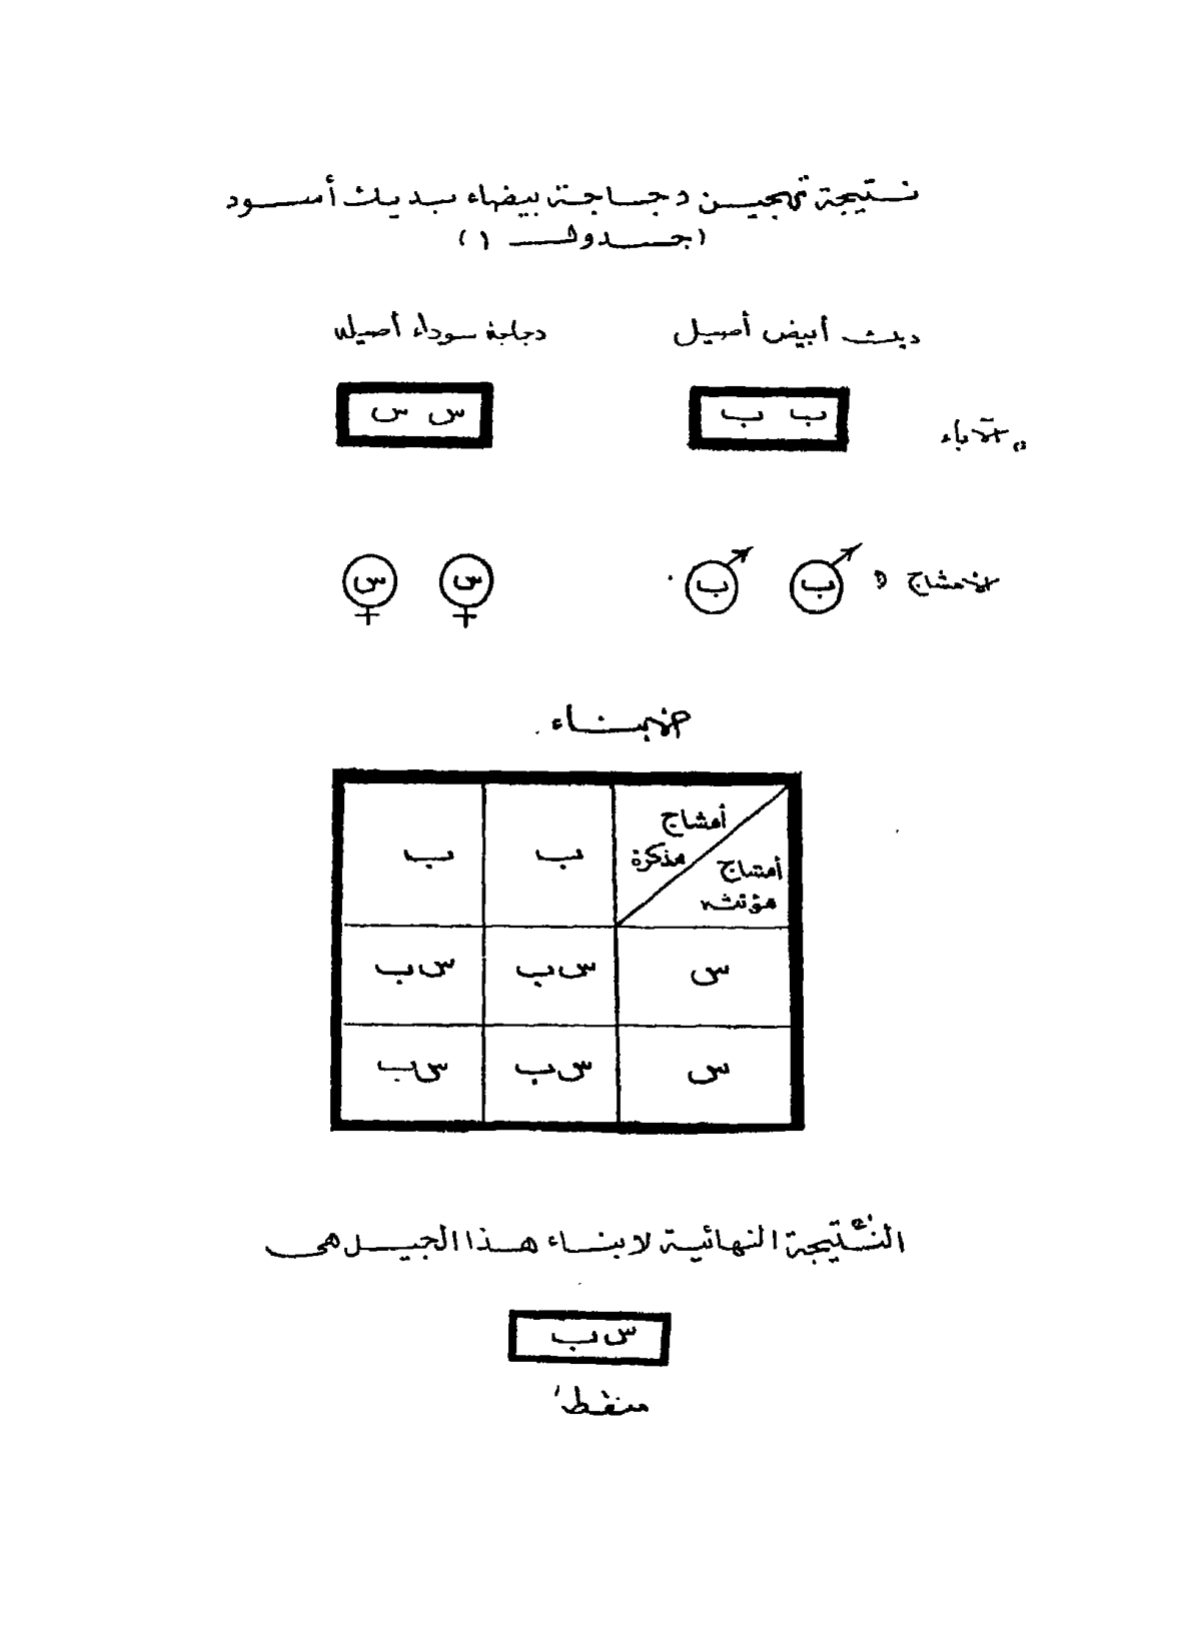 نتيجة تهجين دجاجة بيضاء بديك أسود
(جدول ١)
ديك أبيض أصيل دجاجة سوداء أصيله
الآباء ب ب س س
الأمشاج ب ب س س
الأبناء
أمشاج مذكرة
أمشاج مؤنثه
ب ب
س س ب س ب
س س ب س ب
النتيجة النهائية لابناء هذا الجيل هى
س ب
منقط